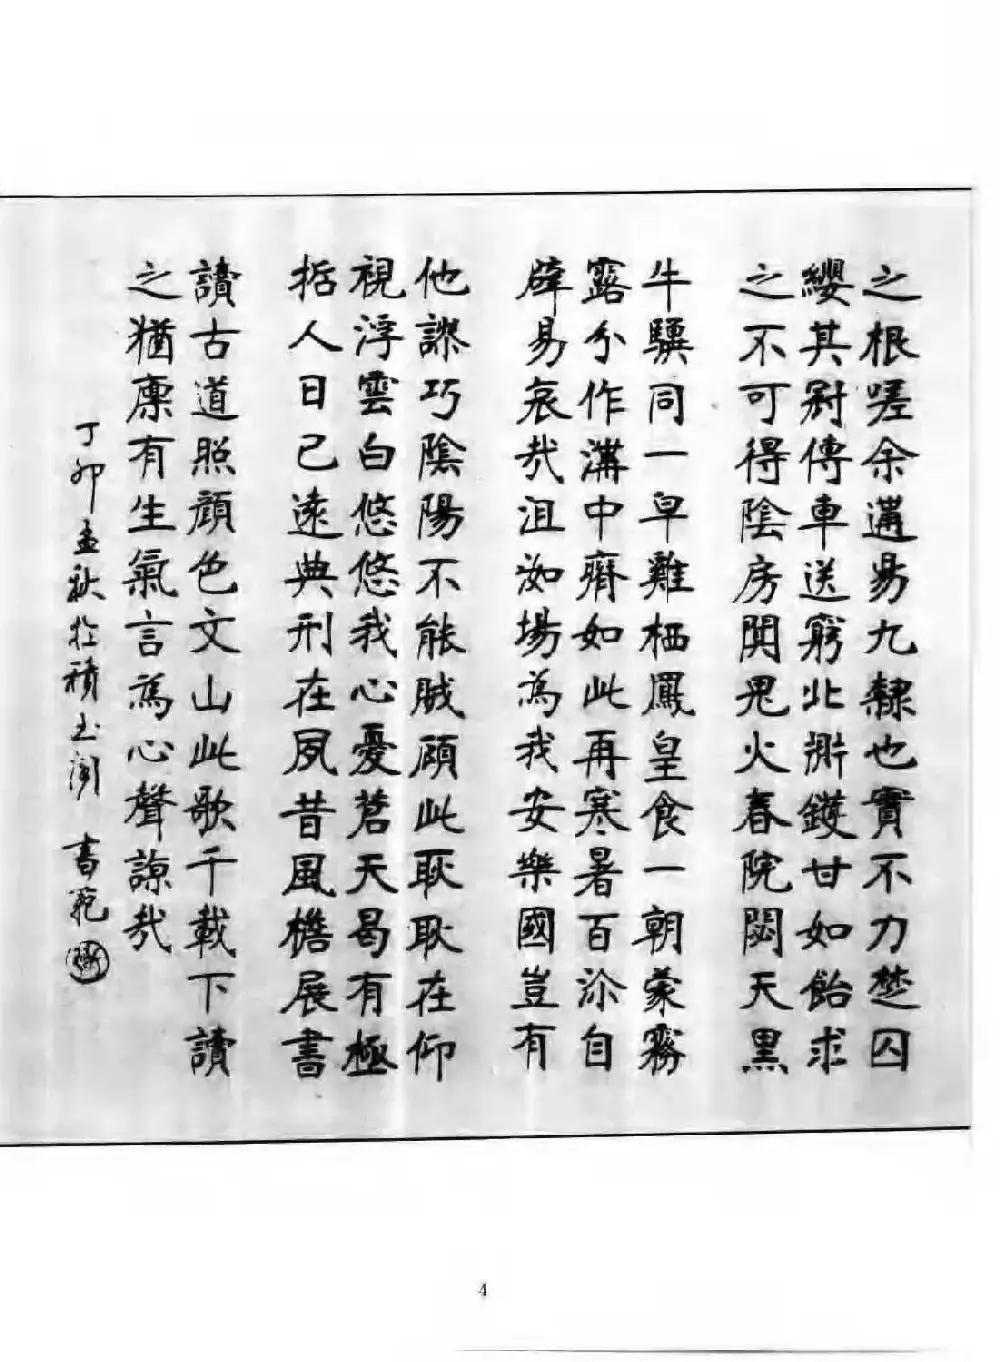 之根嗟余遘昜九隸也實不力楚囚
纓其冠傳車送窮北鼎鑊甘如飴求
之不可得陰房闃鬼火春院閟天黑
牛驥同一皁雞栖鳳皇食一朝蒙霧
露分作溝中瘠如此再寒暑百沴自
辟易哀哉沮洳場為我安樂國豈有
他謬巧陰陽不能賊顧此耿耿在仰
視浮雲白悠悠我心憂蒼天曷有極
哲人日已遠典刑在夙昔風檐展書
讀古道照顏色文山此歌千載下讀
之猶凜有生氣言為心聲諒哉
丁卯孟秋於積玉閣 書范
4